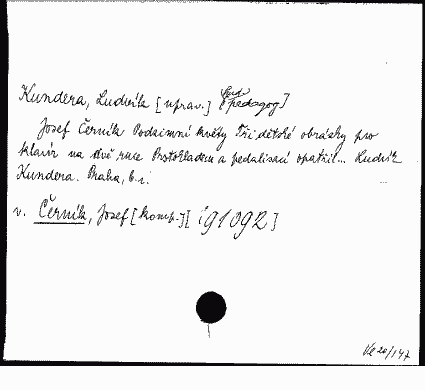 Kundera, Ludvík [uprav.] hud. pedagog]
Josef Černík Podzimní květy Tři dětské obrázky pro
klavír na dvě ruce Prstokladem a pedalisací opatřil... Ludvík
Kundera. Praha, b.r.
v. Černík, Josef [komp.] [i91092]
Ve 20/147